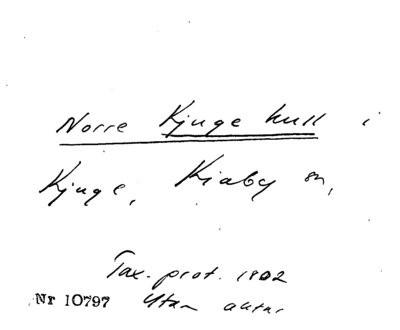 Norre Kjuge hull i
Kjuge, Kiaby sn,
Tax. prot. 1802
Nr 10797 Utan antar